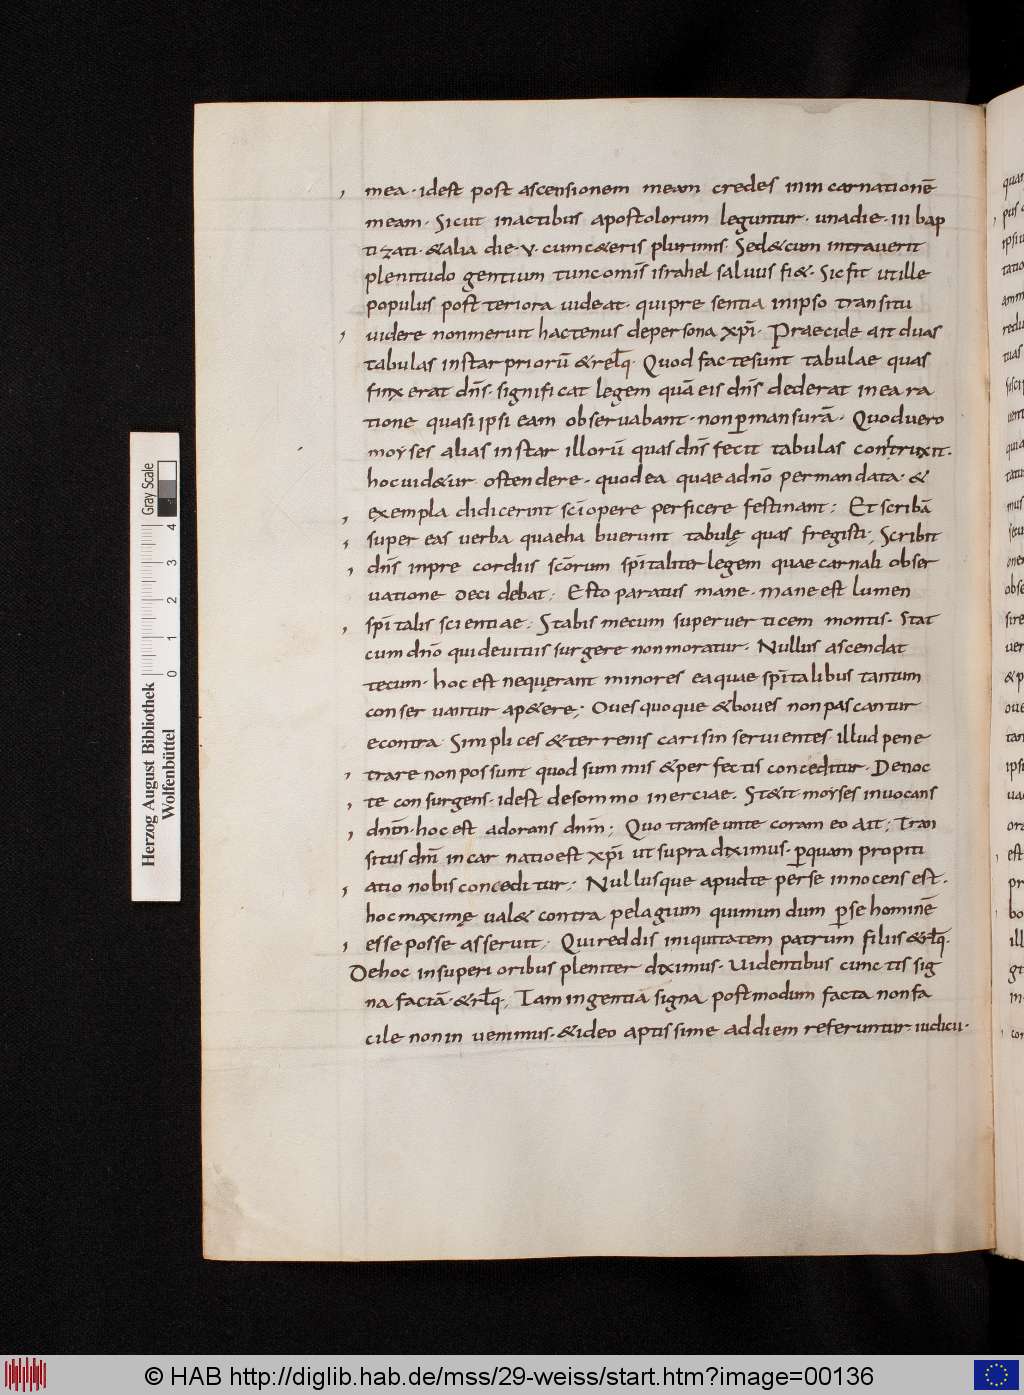 mea · idest post ascensionem meam credes in incarnationē
meam · Sicut in actibus apostolorum leguntur · una die · III bap
tizati · & alia die · V · cum c&eris plurimis · Sed & cum intraverit
plenitudo gentium tunc om̄is israhel saluus fi& · Sic fit ut ille
populus posteriora uideat · qui presentia in ipso transitu
uidere non meruit hactenus de persona xp̄i · Praecide ait duas
tabulas instar priorū & rel̄q · Quod fac te sunt tabulae quas
finxerat dn̄s · significat legem quā eis dn̄s dederat in ea ra
tione quasi ipsi eam observabant · non p̄mansurā · Quod uero
moyses alias instar illorū quas dn̄s fecit tabulas contruxit ·
hoc uid&ur ostendere · quod ea quae a dn̄o per mandata · &
exempla didicerint sc̄i opere perficere festinant ; Et scribā
super eas uerba quae habuerunt tabulę quas fregisti ; Scribit
dn̄s in precordiis sc̄orum sp̄italiter legem quae carnali obser
uatione deci debat ; Esto paratus mane · mane est lumen
sp̄italis scientiae ; Stabis mecum super uerticem montis · Stat
cum dn̄o qui de uitiis surgere non moratur · Nullus ascendat
tecum · hoc est nequęrant minores ea quae sp̄italibus tantum
conseruantur ap&ere ; Oues quoque & boues non pascantur
e contra · Simplices & terrenis caris inservientes illud pene
trare non possunt quod summis & perfectis conceditur · De noc
te consurgens · idest de sommo inerciae · St&it moyses inuocans
dn̄m · hoc est adorans dn̄m ; Quo transeunte coram eo ait ; Tran
situs dn̄i incarnatio est xp̄i ut supra diximus · p̄ quam propiti
atio nobis conceditur ; Nullusque apud te per se innocens est ·
hoc maximę ual& contra pelagium qui mundum p̄ se hominē
esse posse asseruit ; Qui reddis iniquitatem patrum filiis & rl̄q ·
De hoc in superioribus pleniter diximus · Uidentibus cunctis sig
na faciā · & rl̄q ; Iam in gentiā signa postmodum facta non fa
cile non inuenimus · & ideo aptissime ad diem referuntur iudicii ·
quan
pus
ipsiu
tatio
amm
redu
tuas
suscip
uent
quia
tatur
mus
obse
sire
uer
& p
oue
tan
ipsi
ora
est
pr
bo
ill
gi
in
con
Herzog August Bibliothek
Wolfenbüttel
0 1 2 3 4 Gray Scale
© HAB http://diglib.hab.de/mss/29-weiss/start.htm?image=00136